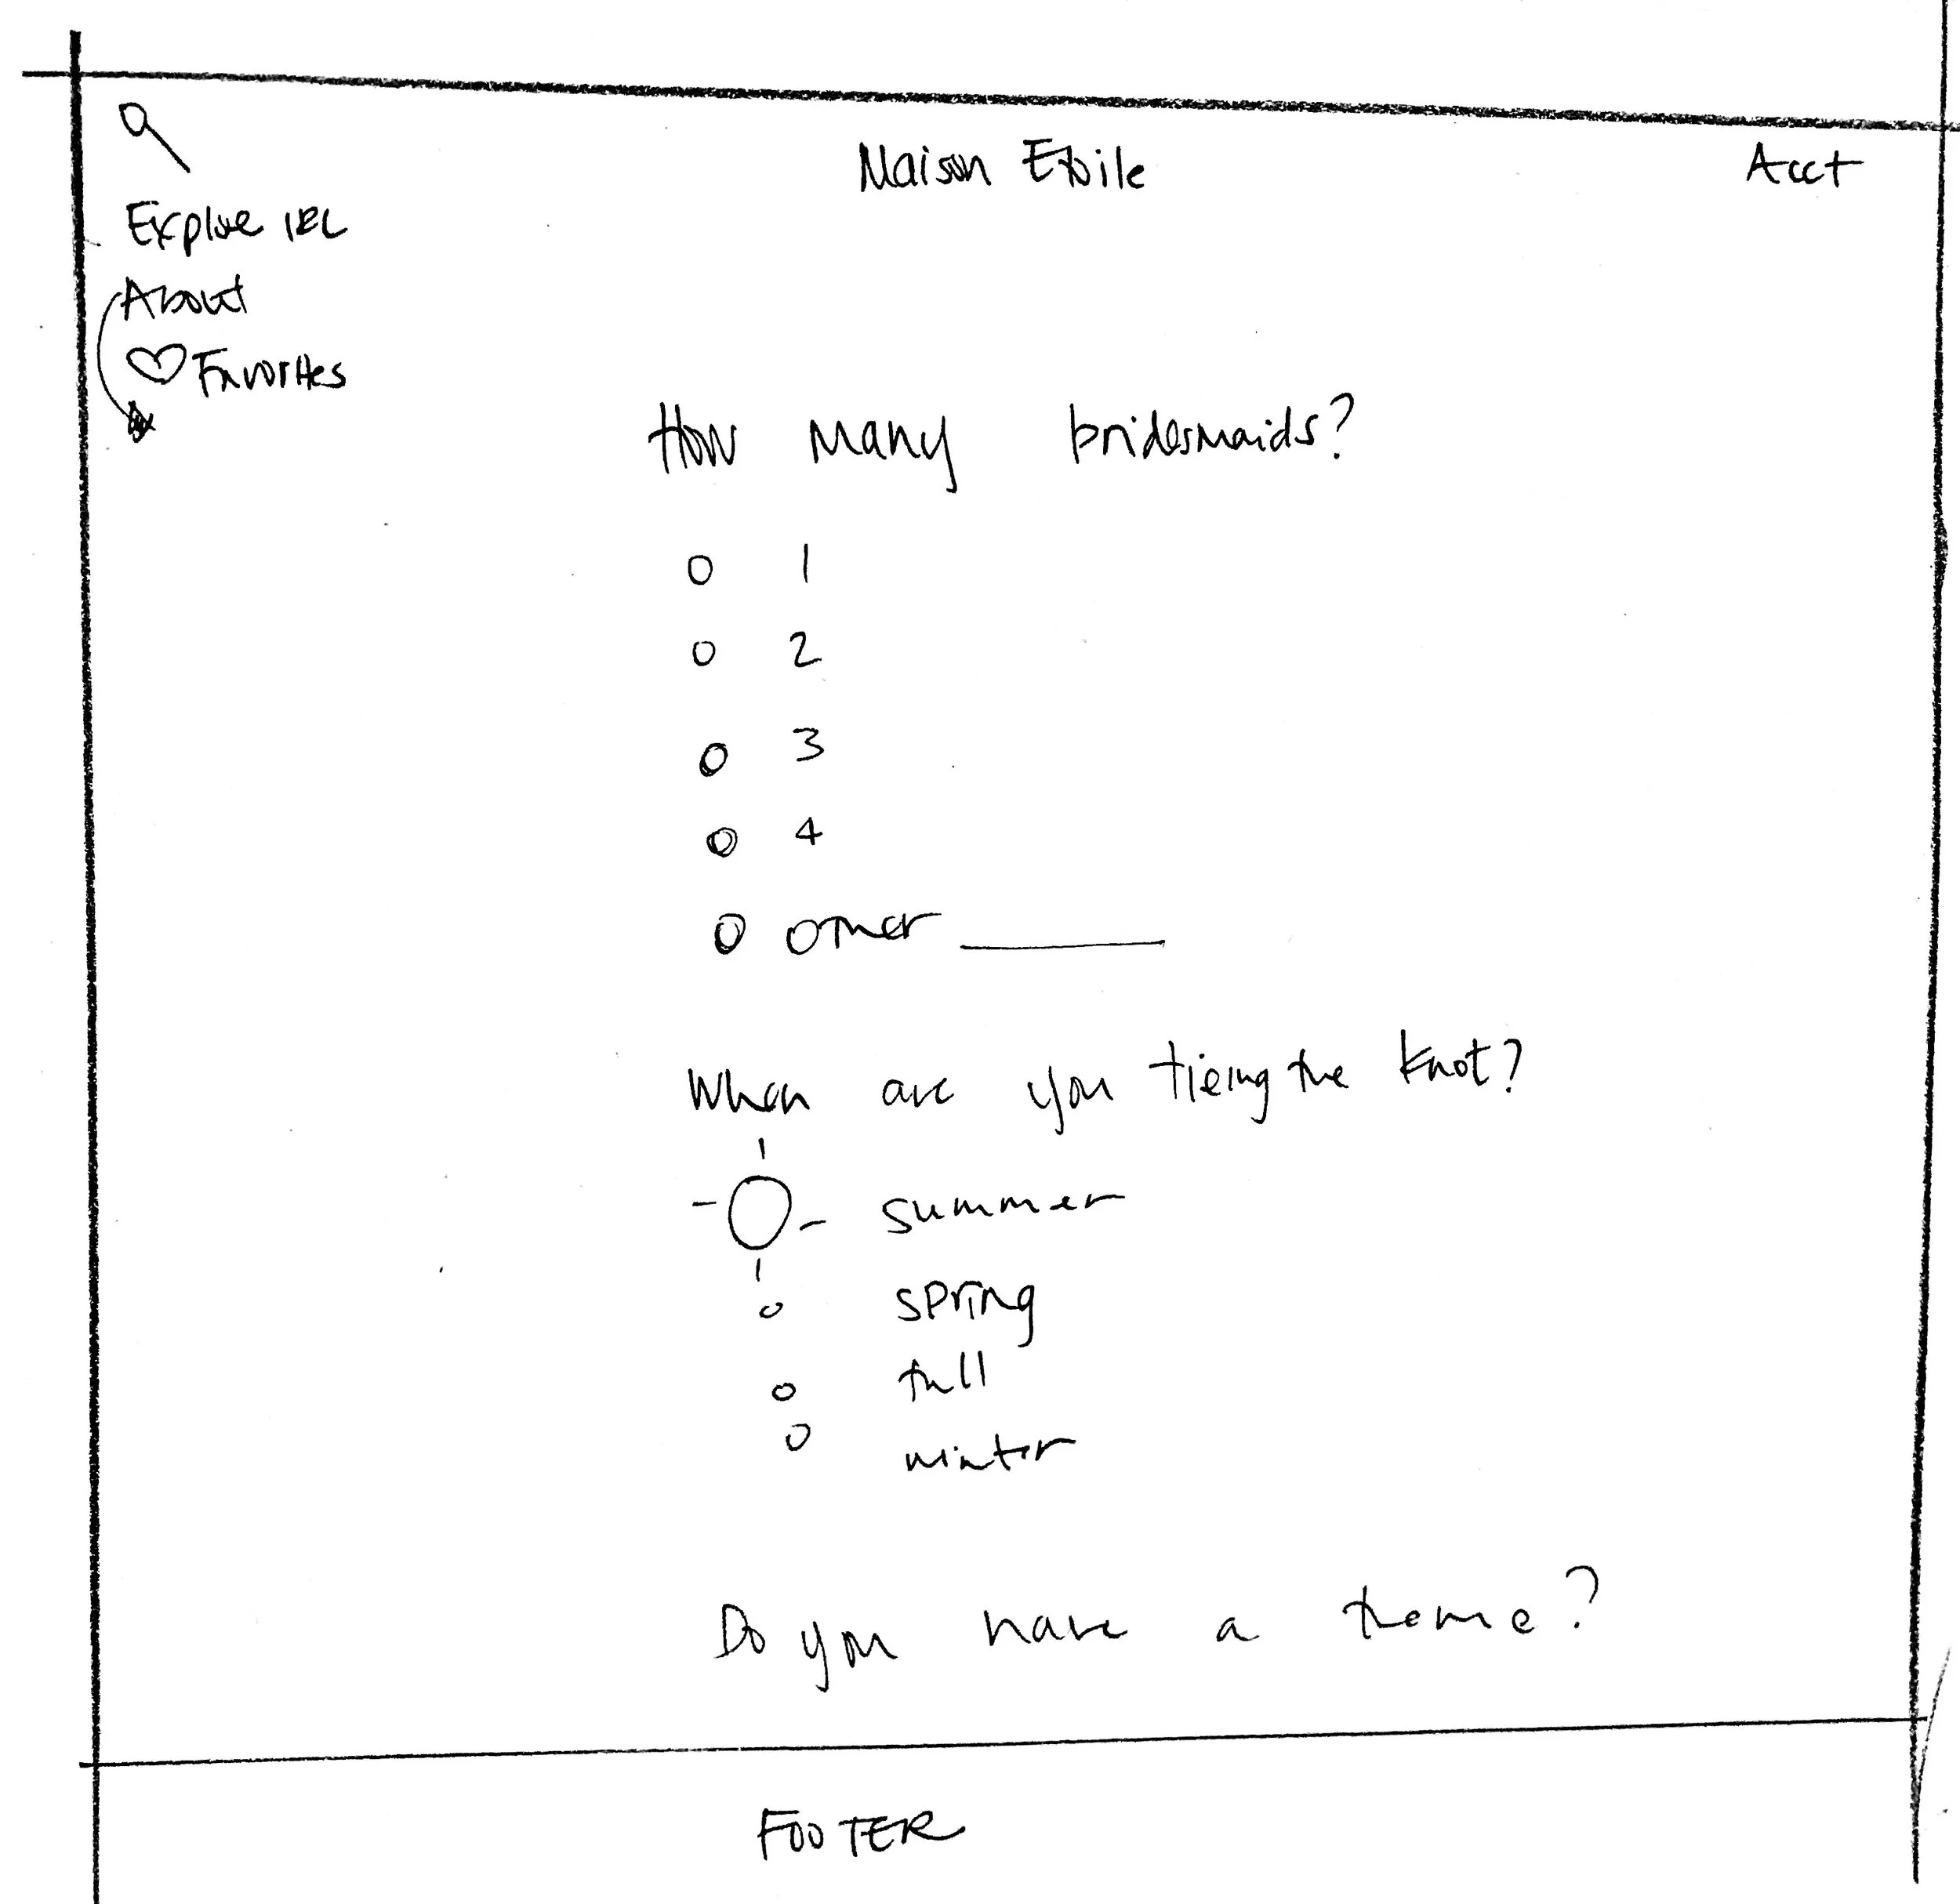 Maison Etoile
Acct
Explore
About
Favorites
How Many bridesmaids?
1
2
3
4
other
When are you tieing the knot?
summer
spring
fall
winter
Do you have a theme?
FOOTER